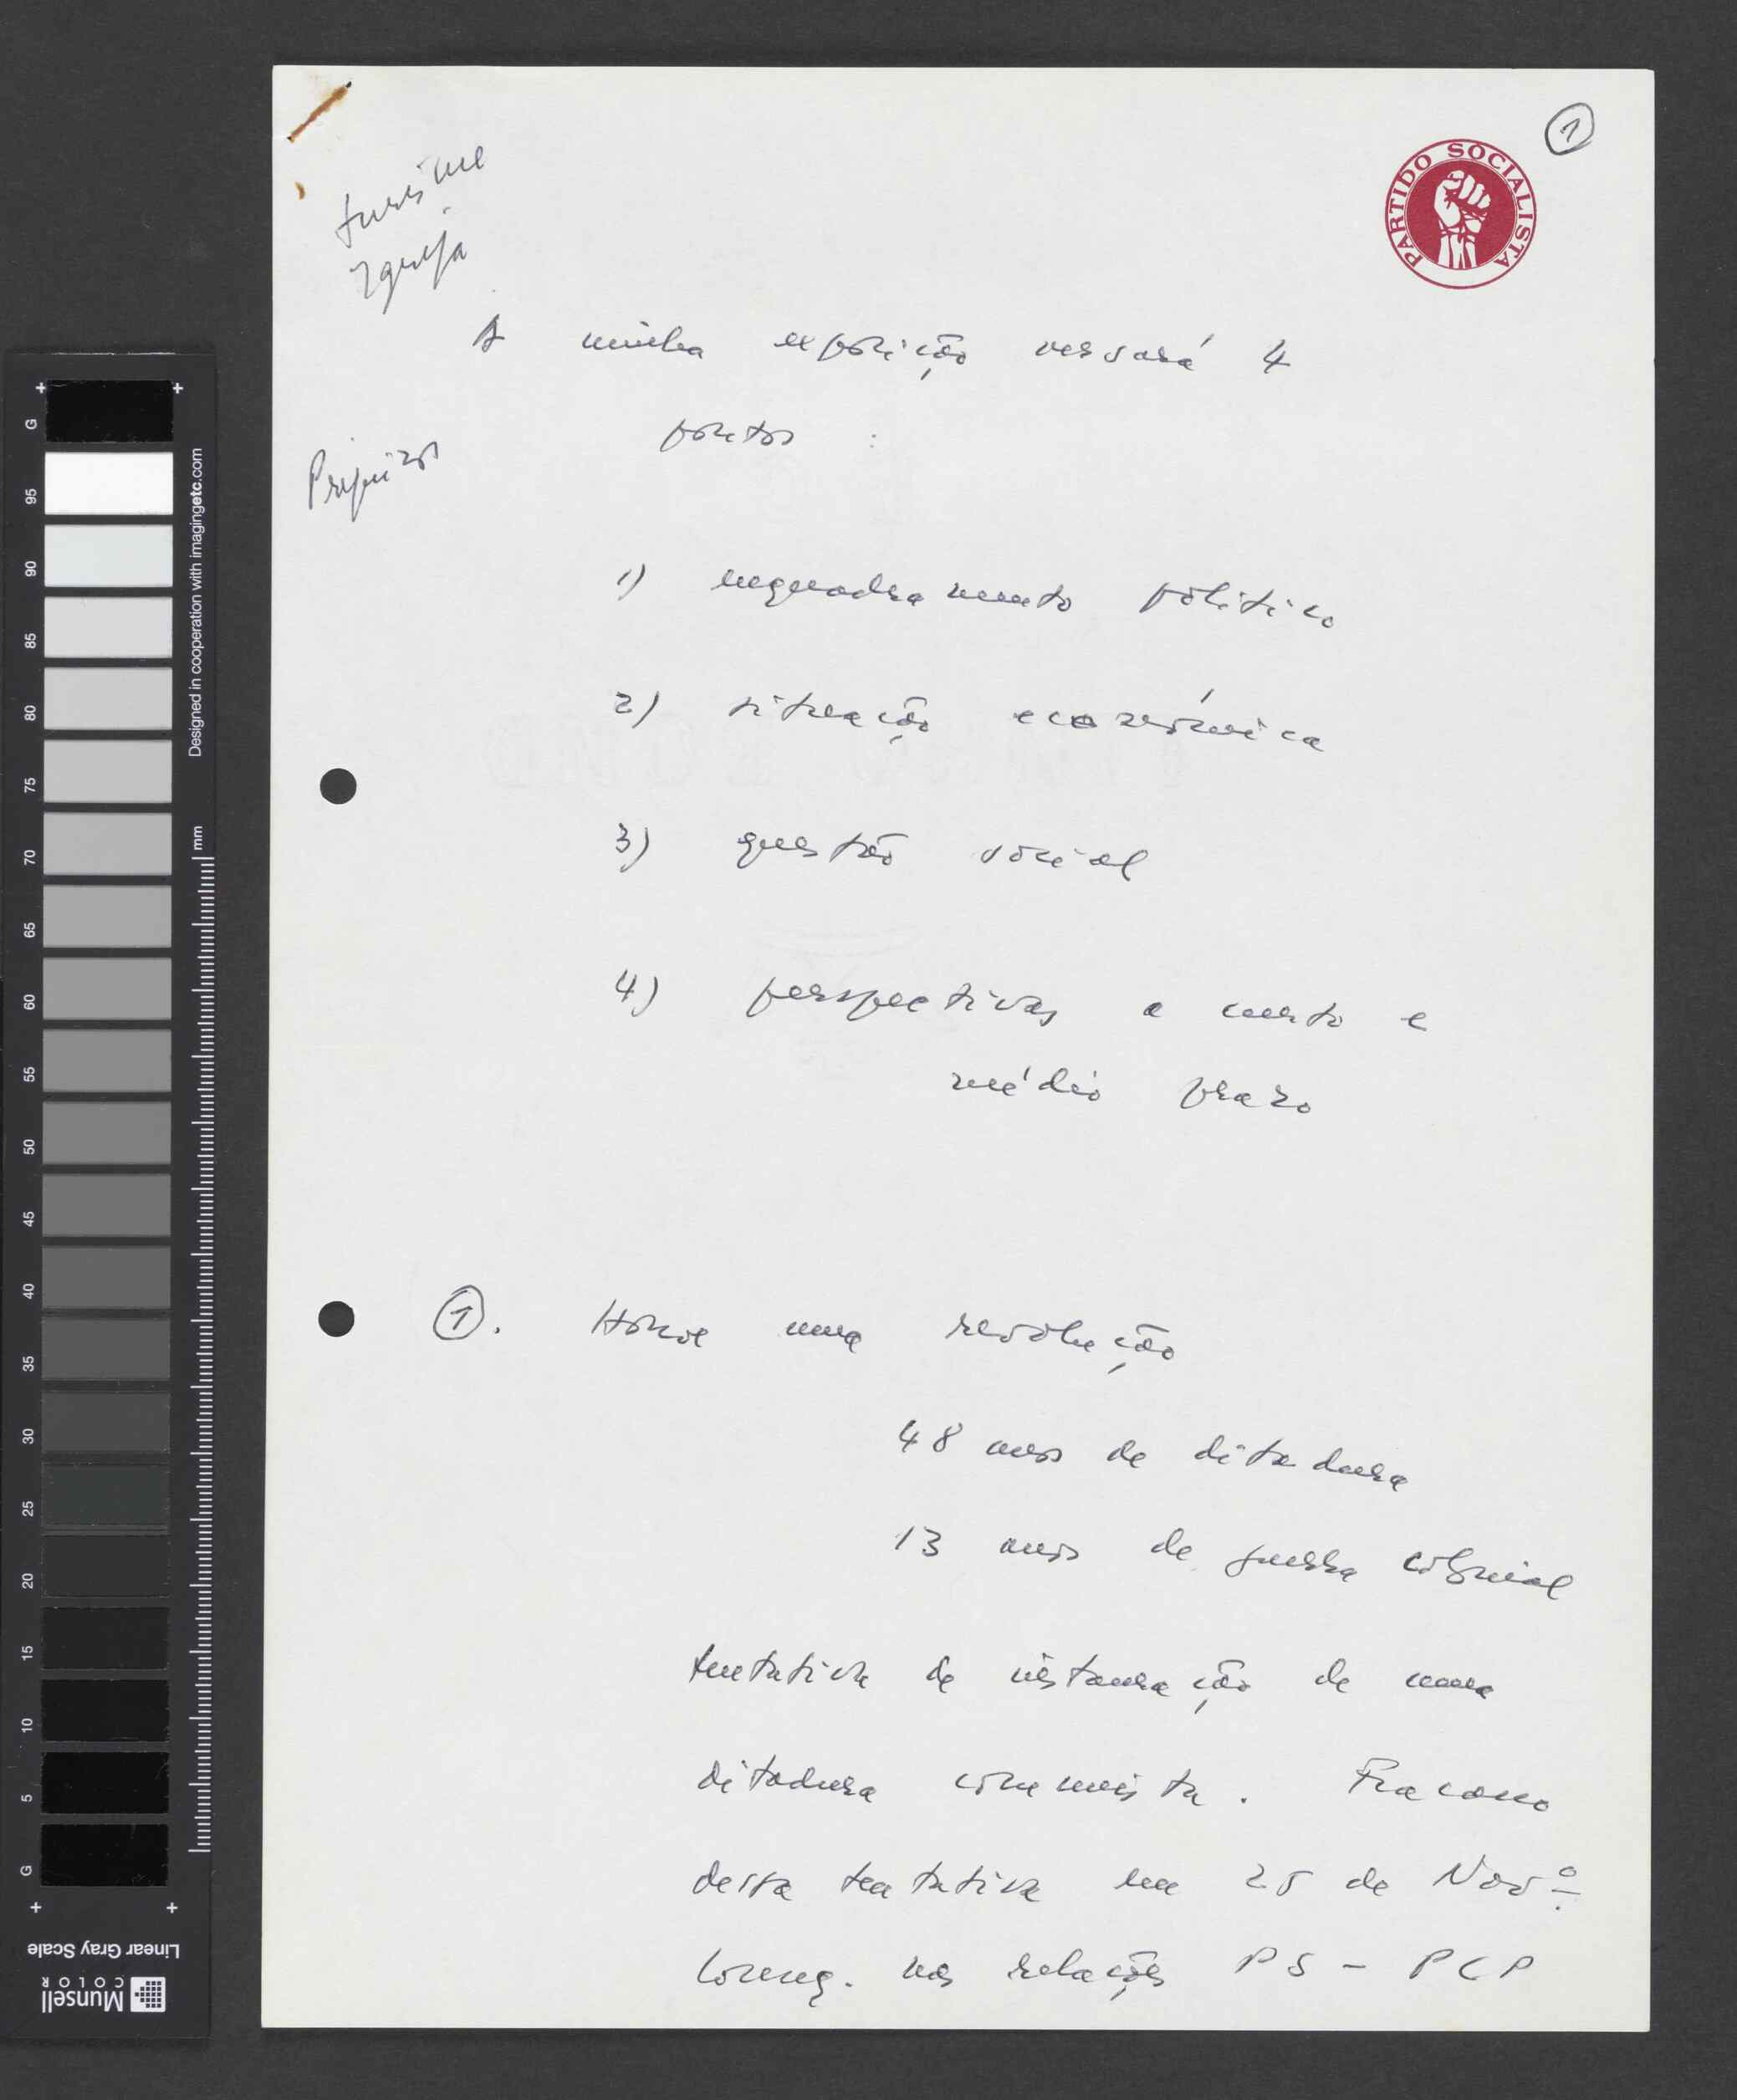 ①
PARTIDO SOCIALISTA
turismo
Igreja
A minha exposição versará 4
pontos :
Prejuízos
1) enquadramento político
2) situação económica
3) questão social
4) perspectivas a curto e
médio prazo
①. Houve uma revolução
48 anos de ditadura
13 anos de guerra colonial
tentativa de instauração de uma
ditadura comunista. Fracasso
dessa tentativa em 25 de Novº
Conseq. nas relações PS - PCP
G
95
90
85
80
75
70
65
60
55
50
45
40
35
30
25
20
15
10
5
G
Designed in cooperation with imagingetc.com
mm
Linear Gray Scale
Munsell
COLOR